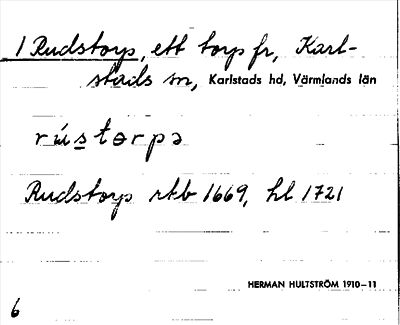 1 Rudstorp, ett torp fr, Karl-
stads sn, Karlstads hd, Värmlands län
rú̶stɵrpə
Rudstorp rkb 1669, hl 1721
HERMAN HULTSTRÖM 1910–11
6